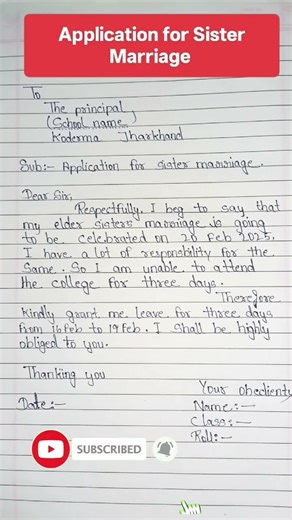 Application for Sister
Marriage
To
The principal,
(School name)
Koderma Jharkhand
Sub:- Application for sister marriage.
Dear Sir,
Respectfully, I beg to say that
my elder sisters marriage is going
to be celebrated on 20 Feb 2025.
I have a lot of responsbility for the
same. So I am unable to attend
the college for three days.
Therefore
Kindly grant me leave for three days
from 16 Feb to 19 Feb. I shall be highly
obliged to you.
Thanking you
Your obediently
Date:-
Name:-
Class:-
Roll:-
SUBSCRIBED